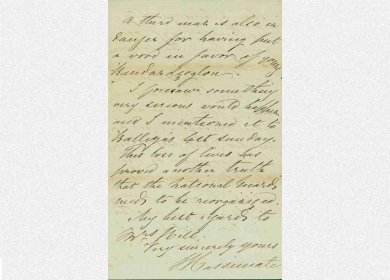 A third man is also in
danger for having put
a word in favor of young
I foresaw something
very serious would happen
and I mentioned it to
last Sunday.
This loss of lives has
proved another truth
that the national guards
needs to be reorganized.
My best regards to
Mrs Hill.
Very sincerely yours